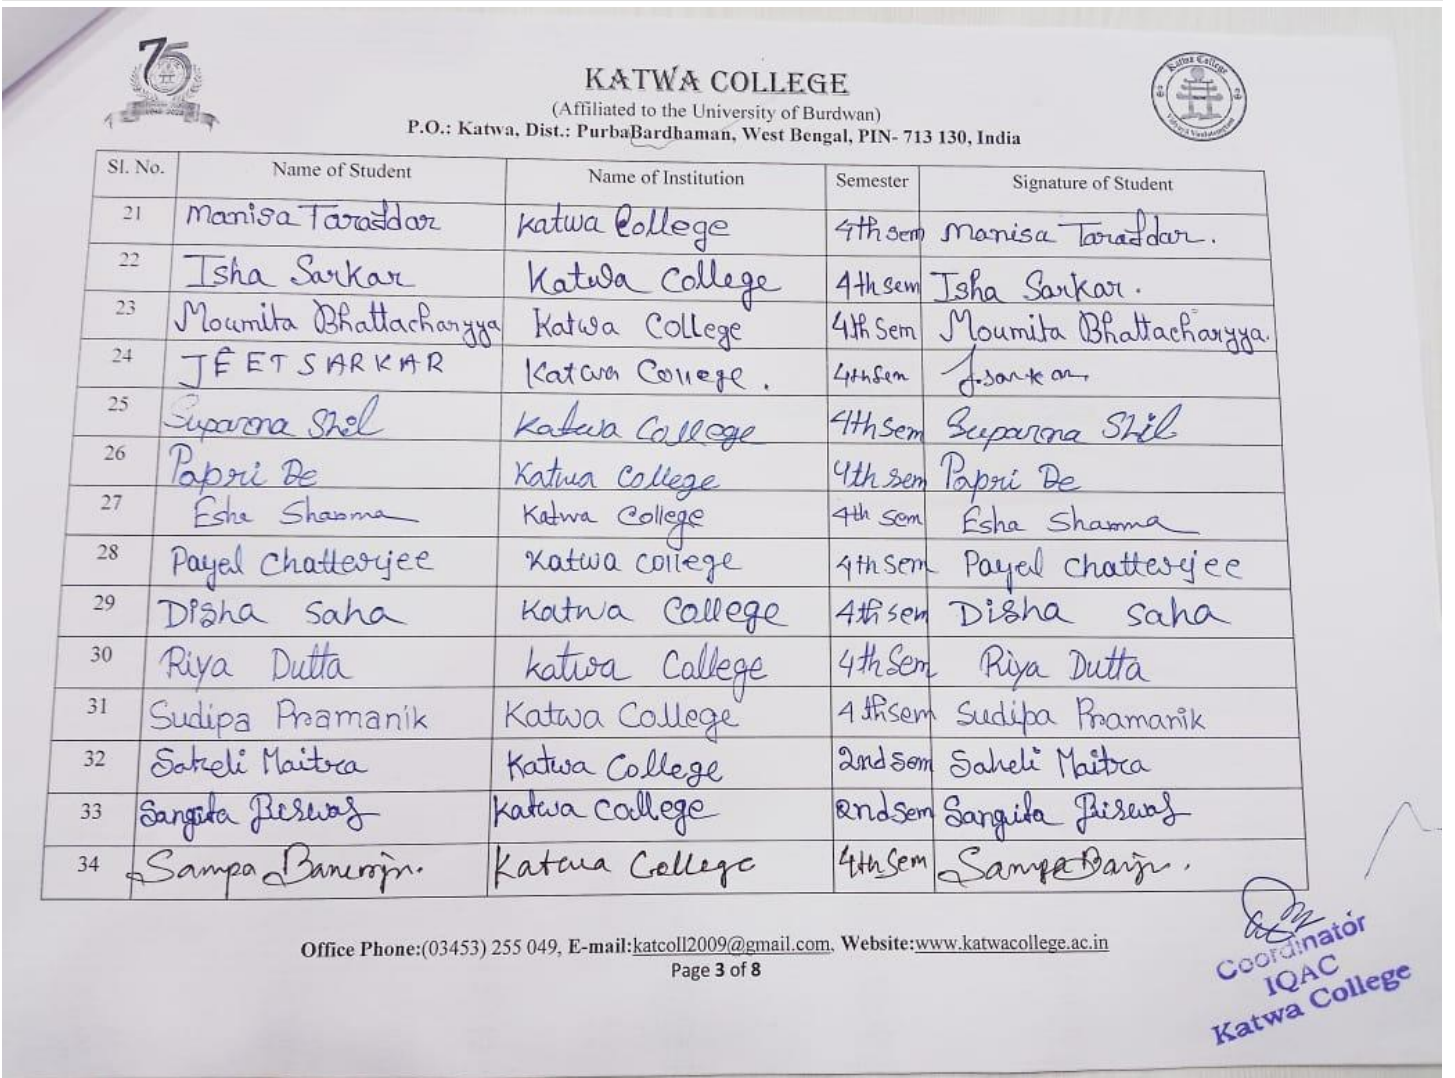 75
KATWA COLLEGE
(Affiliated to the University of Burdwan)
P.O.: Katwa, Dist.: PurbaBardhaman, West Bengal, PIN- 713 130, India
Katwa College
Sl. No. Name of Student Name of Institution Semester Signature of Student
21 Manisa Tarafdar Katwa College 4th sem Manisa Tarafdar.
22 Isha Sarkar Katwa College 4th sem Isha Sarkar.
23 Moumita Bhattacharyya Katwa College 4th Sem Moumita Bhattacharyya.
24 JEET SARKAR Katwa College. 4th Sem J.sarkar.
25 Suparna Shil Katwa College 4th Sem Suparna Shil
26 Papri De Katwa College 4th sem Papri De
27 Esha Sharma Katwa College 4th sem Esha Sharma
28 Payel Chatterjee Katwa college 4th sem Payel Chatterjee
29 Disha Saha Katwa College 4th sem Disha Saha
30 Riya Dutta Katwa College 4th Sem Riya Dutta
31 Sudipa Pramanik Katwa College 4th sem Sudipa Pramanik
32 Saheli Maitra Katwa College 2nd Sem Saheli Maitra
33 Sangita Biswas Katwa College 2nd Sem Sangita Biswas
34 Sampa Katwa College 4th Sem Sampa
Office Phone:(03453) 255 049, E-mail:katcoll2009@gmail.com, Website:www.katwacollege.ac.in
Page 3 of 8
Coordinator
IQAC
Katwa College